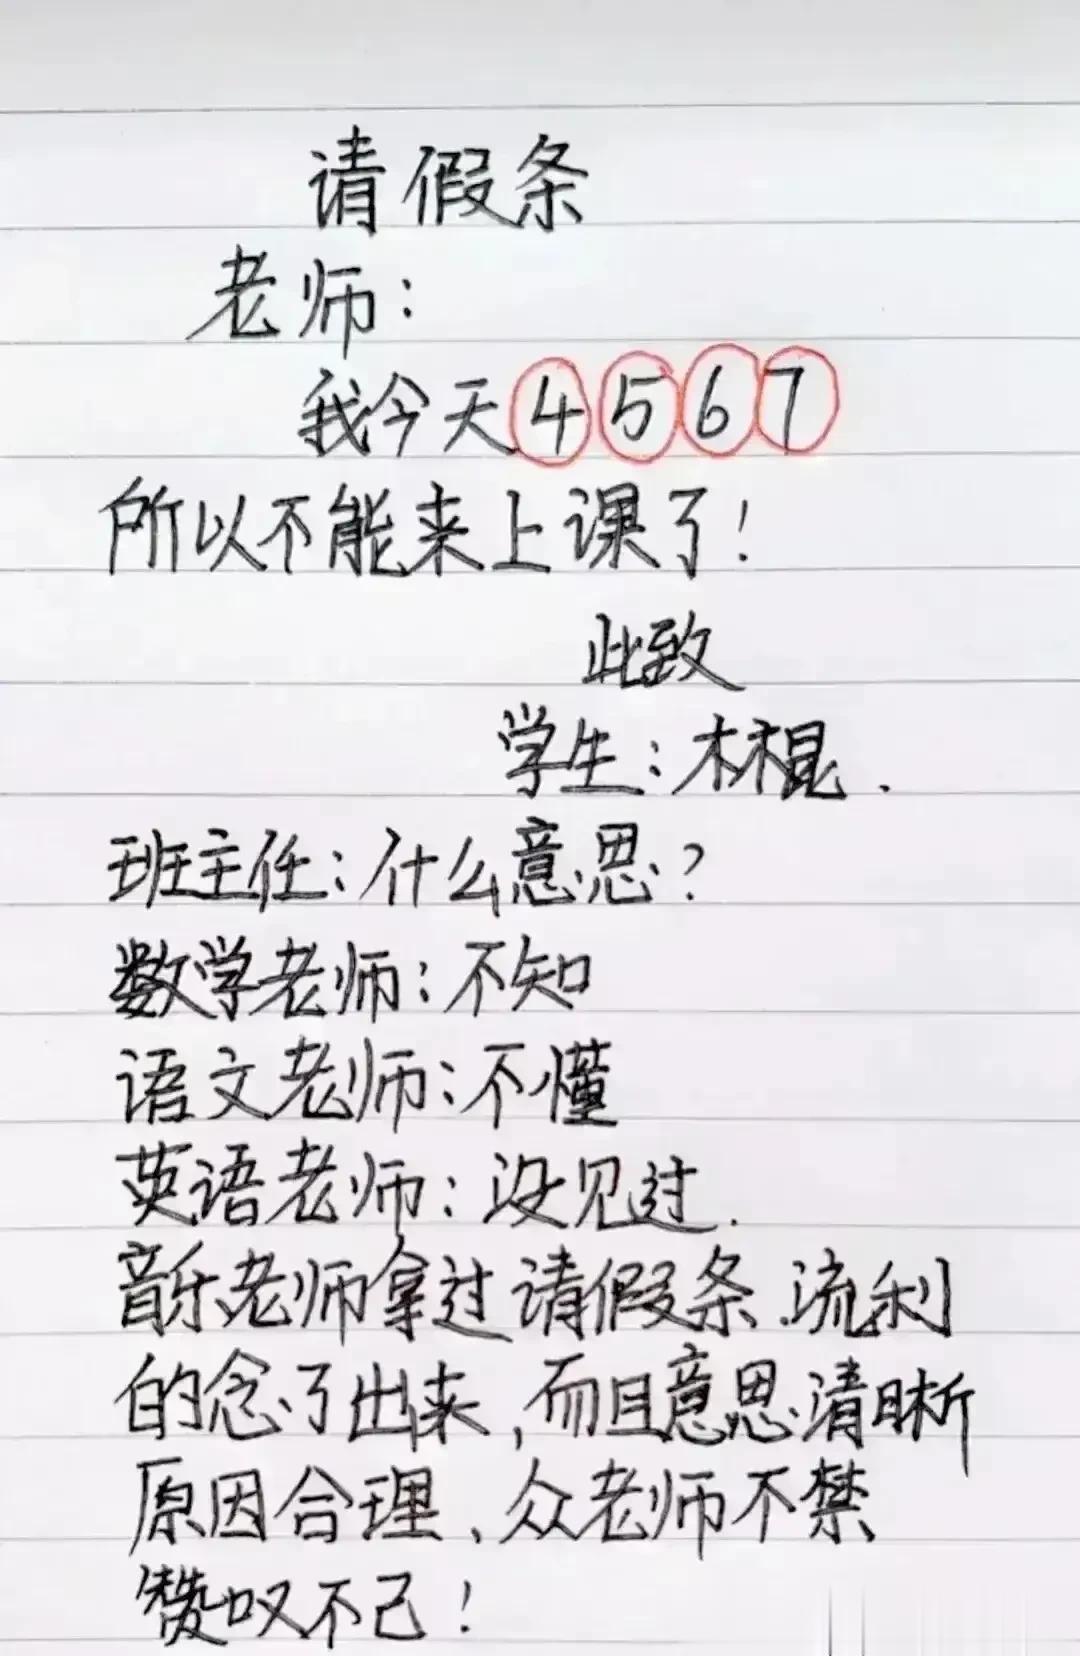 请假条
老师：
我今天4567
所以不能来上课了！
此致
学生：木棍.
班主任：什么意思？
数学老师：不知
语文老师：不懂
英语老师：没见过.
音乐老师拿过请假条.流利
的念了出来，而且意思清晰
原因合理、众老师不禁
赞叹不己！